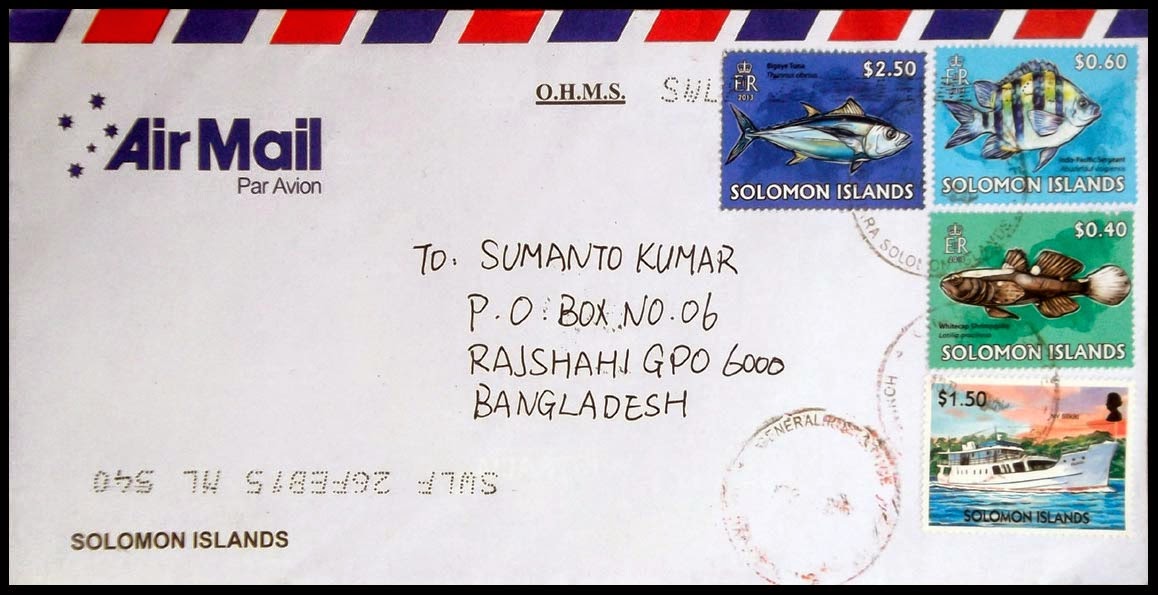 Air Mail
Par Avion
O.H.M.S.
SWL
Bigeye Tuna
Thunnus obesus
$2.50
2013
SOLOMON ISLANDS
$0.60
Indo-Pacific Sergeant
Abudefduf vaigiensis
SOLOMON ISLANDS
$0.40
Whitecap Shrimpgoby
SOLOMON ISLANDS
$1.50
SOLOMON ISLANDS
TO: SUMANTO KUMAR
P.O. BOX NO. 06
RAJSHAHI GPO 6000
BANGLADESH
GENERAL
SWLF 26FEB15 ML 540
SOLOMON ISLANDS